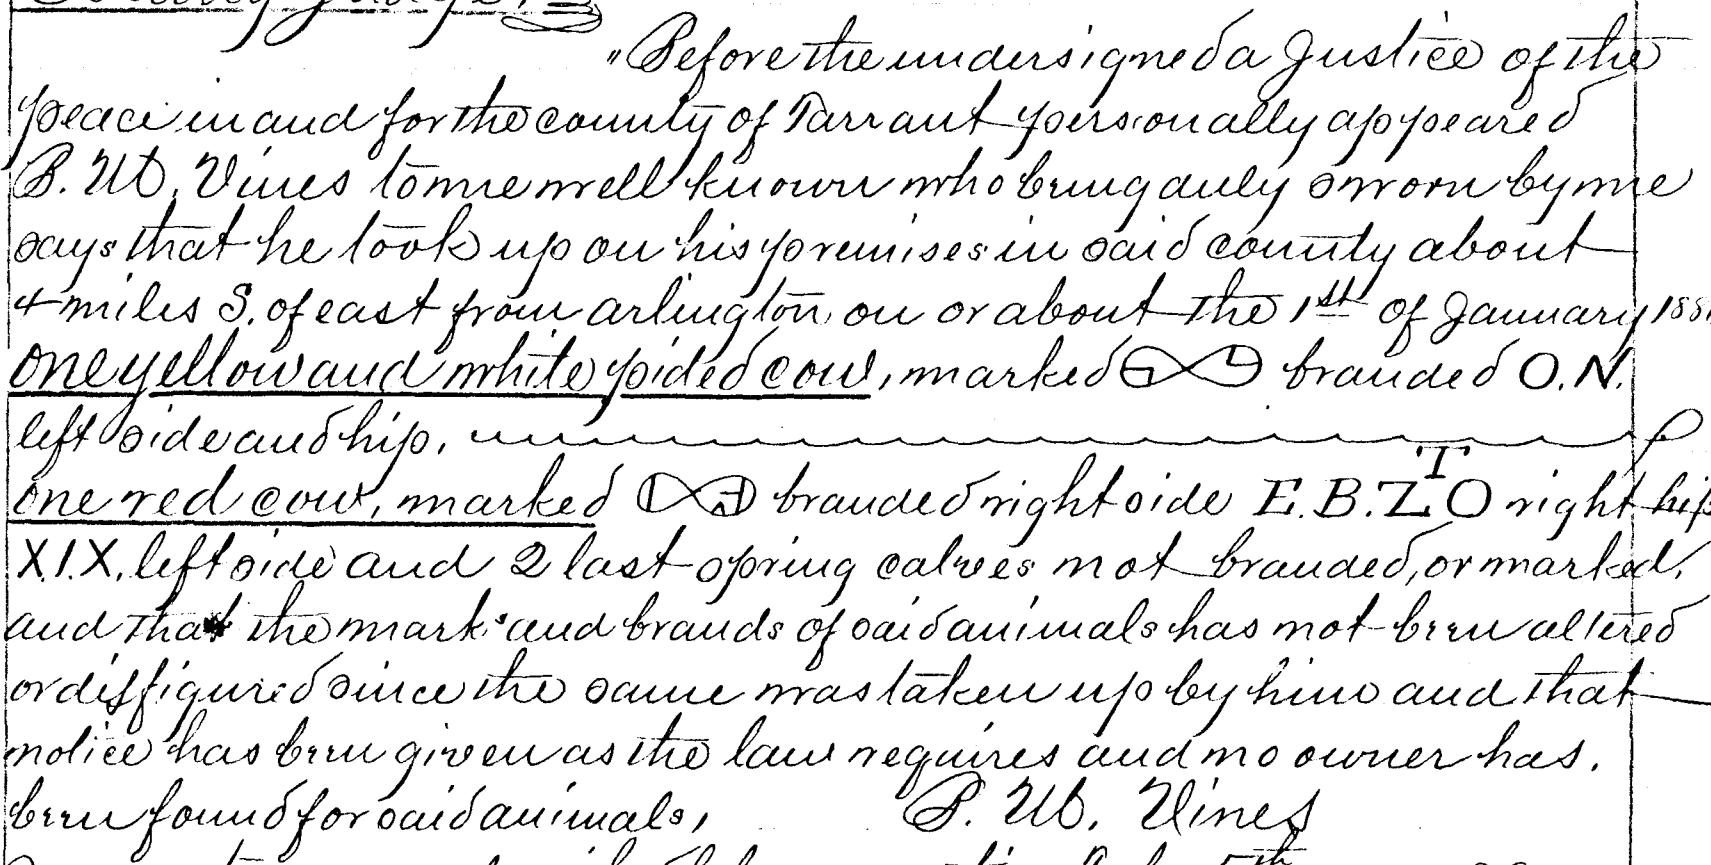 "Before the undersigned a Justice of the
peace in and for the county of Tarrant personally appeared
P. W. Vines to me well known who being duly sworn by me
says that he took up on his premises in said county about
4 miles S. of east from arlington on or about the 1st of January
one yellow and white pided cow, marked branded O.N.
left side and hip.
one red cow, marked branded right side E.B.Z T O right hip
X.I.X. left side and 2 last spring calves not branded, or marked.
and that the marks and brands of said animals has not been altered
or disfigured since the same was taken up by him and that
notice has been given as the law requires and no owner has.
been found for said animals,
P. W. Vines